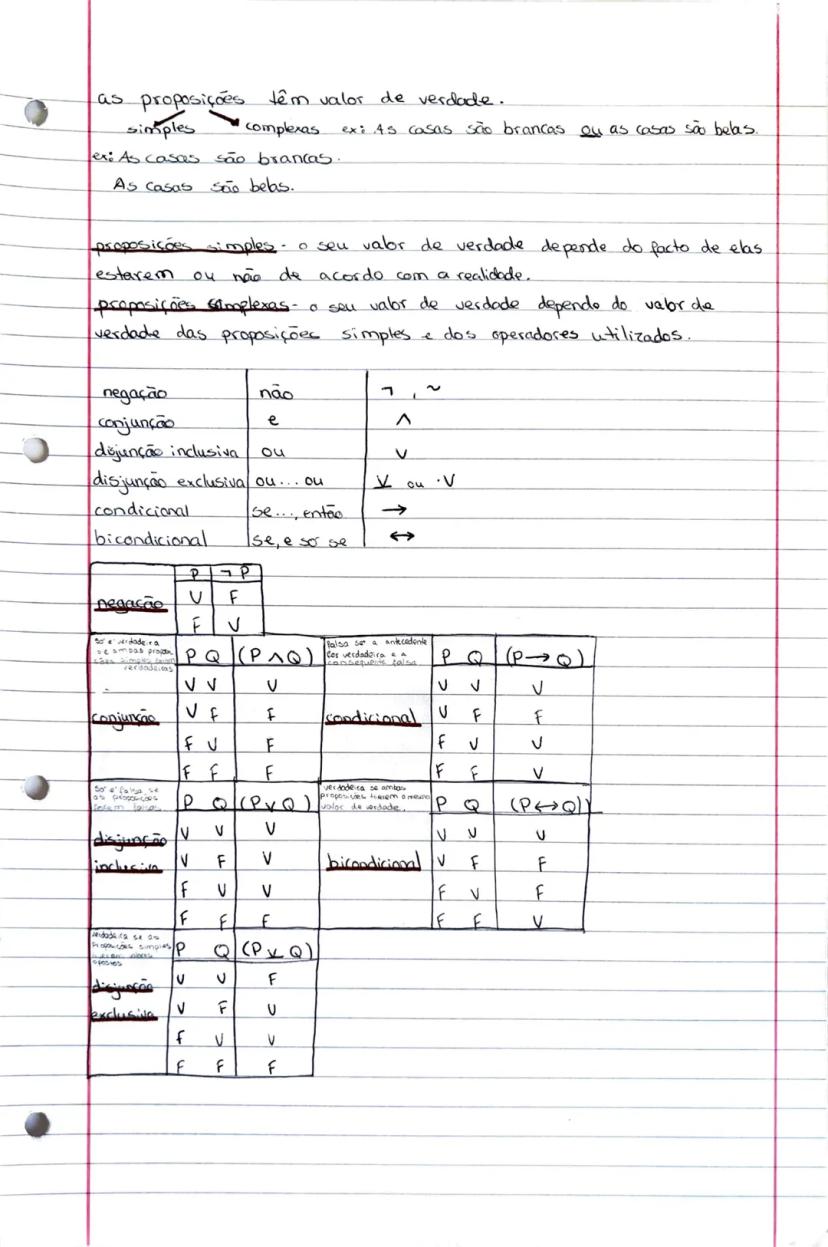 as proposições têm valor de verdade.
simples complexas ex: As casas são brancas ou as casas são belas.
ex: As casas são brancas.
As casas são belas.
proposições simples - o seu valor de verdade depende do facto de elas
estarem ou não de acordo com a realidade.
proposições complexas - o seu valor de verdade depende do valor de
verdade das proposições simples e dos operadores utilizados.
negação não ¬ , ~
conjunção e ∧
disjunção inclusiva ou ∨
disjunção exclusiva ou...ou ⊻ ou ·V
condicional se..., então →
bicondicional se, e só se ↔
P ¬P
negação V F
F V
só é verdadeira
se ambas propo-
sições simples forem
verdadeiras
P Q (P ∧ Q)
V V V
conjunção V F F
F V F
F F F
falsa se a antecedente
for verdadeira e a
consequente falsa
P Q (P → Q)
V V V
condicional V F F
F V V
F F V
só é falsa se
as proposições
forem falsas
P Q (P ∨ Q)
disjunção V V V
inclusiva V F V
F V V
F F F
verdadeira se ambas
proposições tiverem o mesmo
valor de verdade.
P Q (P ↔ Q))
V V V
bicondicional V F F
F V F
F F V
verdadeira se as
proposições simples
opostos
P Q (P ⊻ Q)
disjunção V V F
exclusiva V F V
F V V
F F F